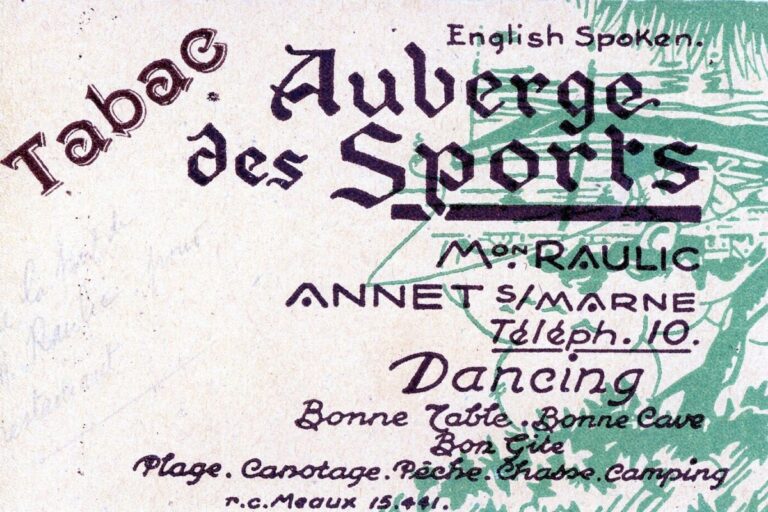 English Spoken.
Tabac
Auberge
des Sports
Mon. RAULIC
ANNET s/MARNE
Téléph. 10.
Dancing
Bonne Table. Bonne Cave
Bon Gîte
Plage. Canotage. Pêche. Chasse. Camping
r.c. Meaux 15.441.
la
Raulic pour
restaurant